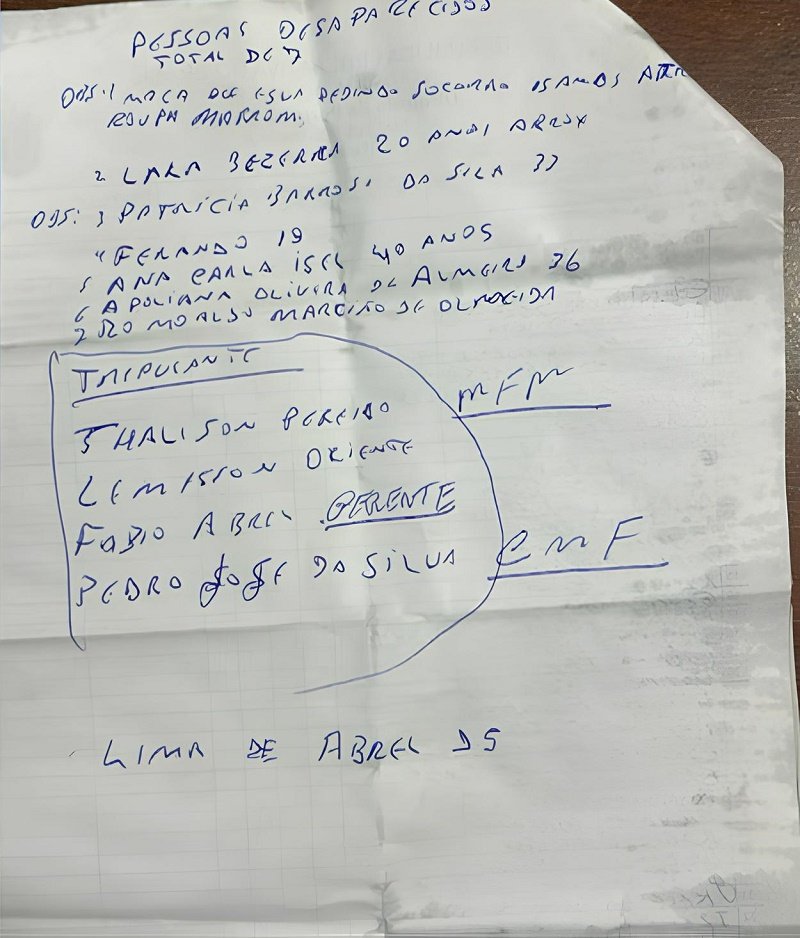 PESSOAS DESAPARECIDOS
TOTAL DE 7
OBS: 1 MOÇA QUE ESUA PEDINDO SOCORRO 15 ANOS
ROUPA MARROM.
2 LARA BEZERRA 20 ANOS APROX
OBS: 3 PATRICIA BARROS DA SILA 33
4 FERANDO 19
5 ANA CARLA ISEL 40 ANOS
6 APOLIANA OLIVERA DE ALMEIRO 36
7 ROMOALDO MARCIÃO DE OLMOEIDA
TRIPULANTE
THALISON PEREIRO
LEMISSON ORIENTE
FABIO ABREL GERENTE
PEDRO JOSE DA SILVA
MFM
CMF
LIMA DE ABREL 05